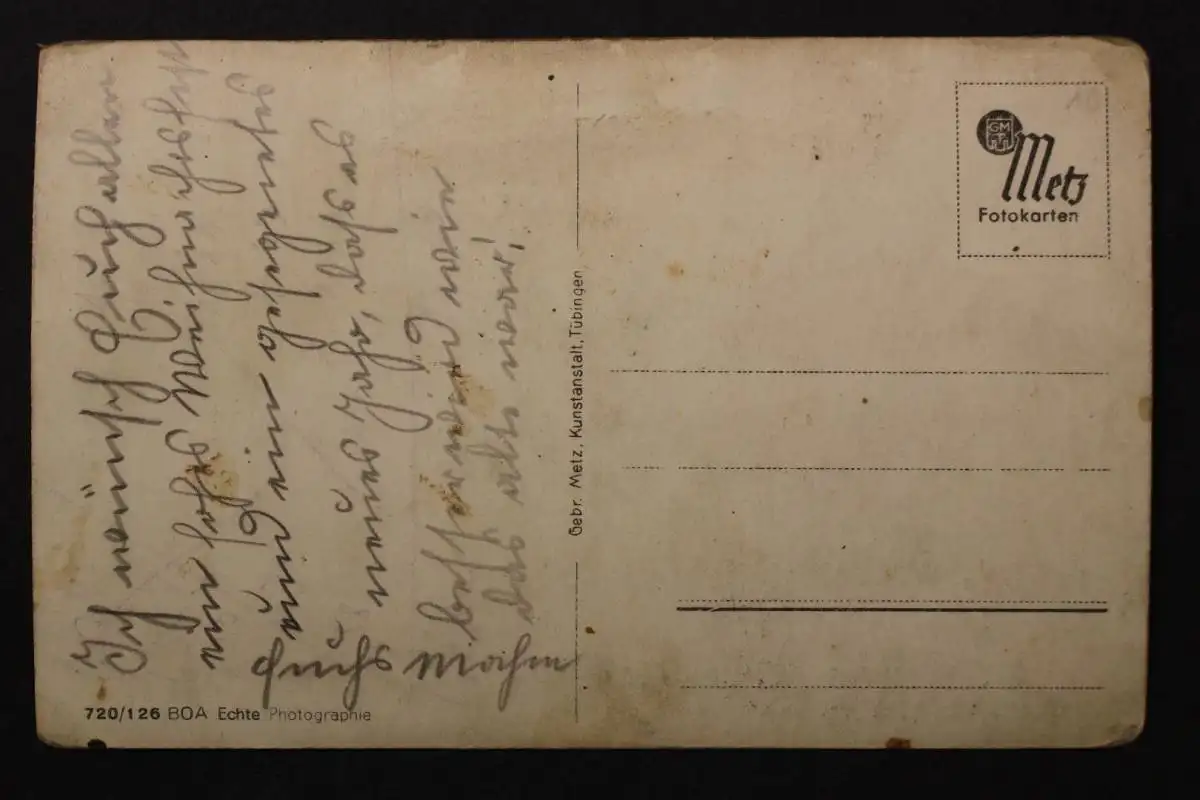 Ich wünsch Euch allen
ein frohes Weihnachtsfest
und ein gesegnetes
neues Jahr, daß es
besser wird wie
das alte war,
Fuchs
720/126 BOA Echte Photographie
Gebr. Metz, Kunstanstalt, Tübingen
GMT
Metz
Fotokarten